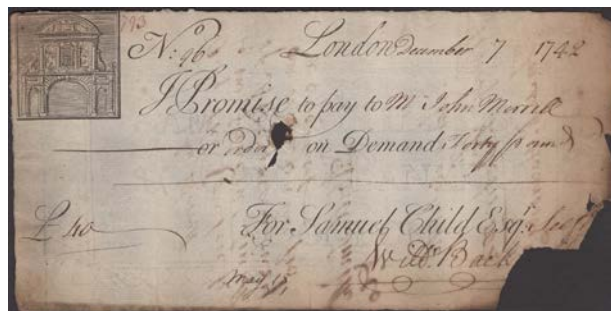 793
No: 96 London December 7 1742
I Promise to pay to Mr John Morrill
or order on Demand Forty pounds
£ 40 For Samuel Child Esqr.
Willm Back
May